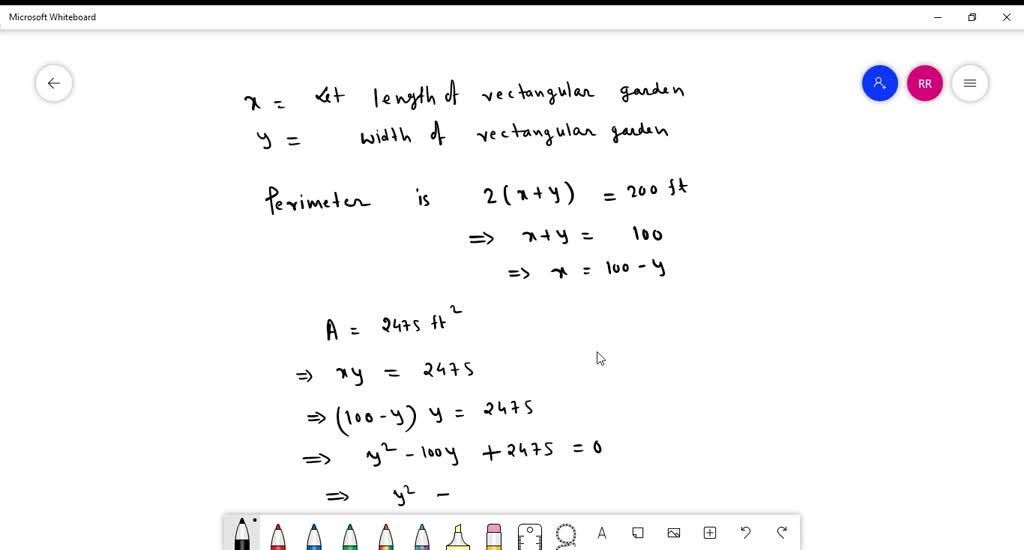 Microsoft Whiteboard
RR
x = Let length of rectangular garden
y = width of rectangular garden
Perimeter is 2(x+y) = 200 ft
⇒ x+y = 100
⇒ x = 100 - y
A = 2475 ft²
⇒ xy = 2475
⇒ (100-y) y = 2475
⇒ y² - 100y + 2475 = 0
⇒ y² -
A